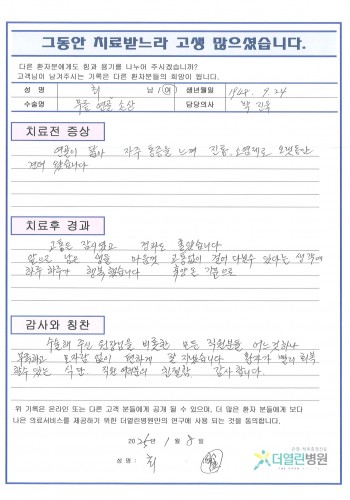 그동안 치료받느라 고생 많으셨습니다.
다른 환자분에게도 힘과 용기를 나누어 주시겠습니까?
고객님이 남겨주시는 기록은 다른 환자분들의 희망이 됩니다.
성 명 최 남 / 여 생년월일 1948. 9. 24
수술명 무릎 연골 손상 담당의사 박진욱
치료전 증상
연골이 닳아 자주 통증을 느껴 진통 소염제로 오랫동안
견뎌 왔습니다
치료후 경과
고통도 잠시였고 경과도 좋았습니다
앞으로 남은 생을 마음껏 고통없이 걸어 다닐수 있다는 생각에
하루 하루가 행복했습니다
감사와 칭찬
수술해 주신 원장님을 비롯한 모든 직원분들 어느것하나
부족하고 모자람 없이 편하게 잘 지냈습니다 환자가 빨리 회복
할수 있는 식단. 직원 여러분의 친절함, 감사합니다.
위 기록은 온라인 또는 다른 고객 분들에게 공개 될 수 있으며, 더 많은 환자 분들에게 보다
나은 의료서비스를 제공하기 위한 더열린병원만의 연구에 사용 되는 것을 동의합니다.
2025년 1월 8일
성 명 : 최
더열린병원
THE OPEN HOSPITAL